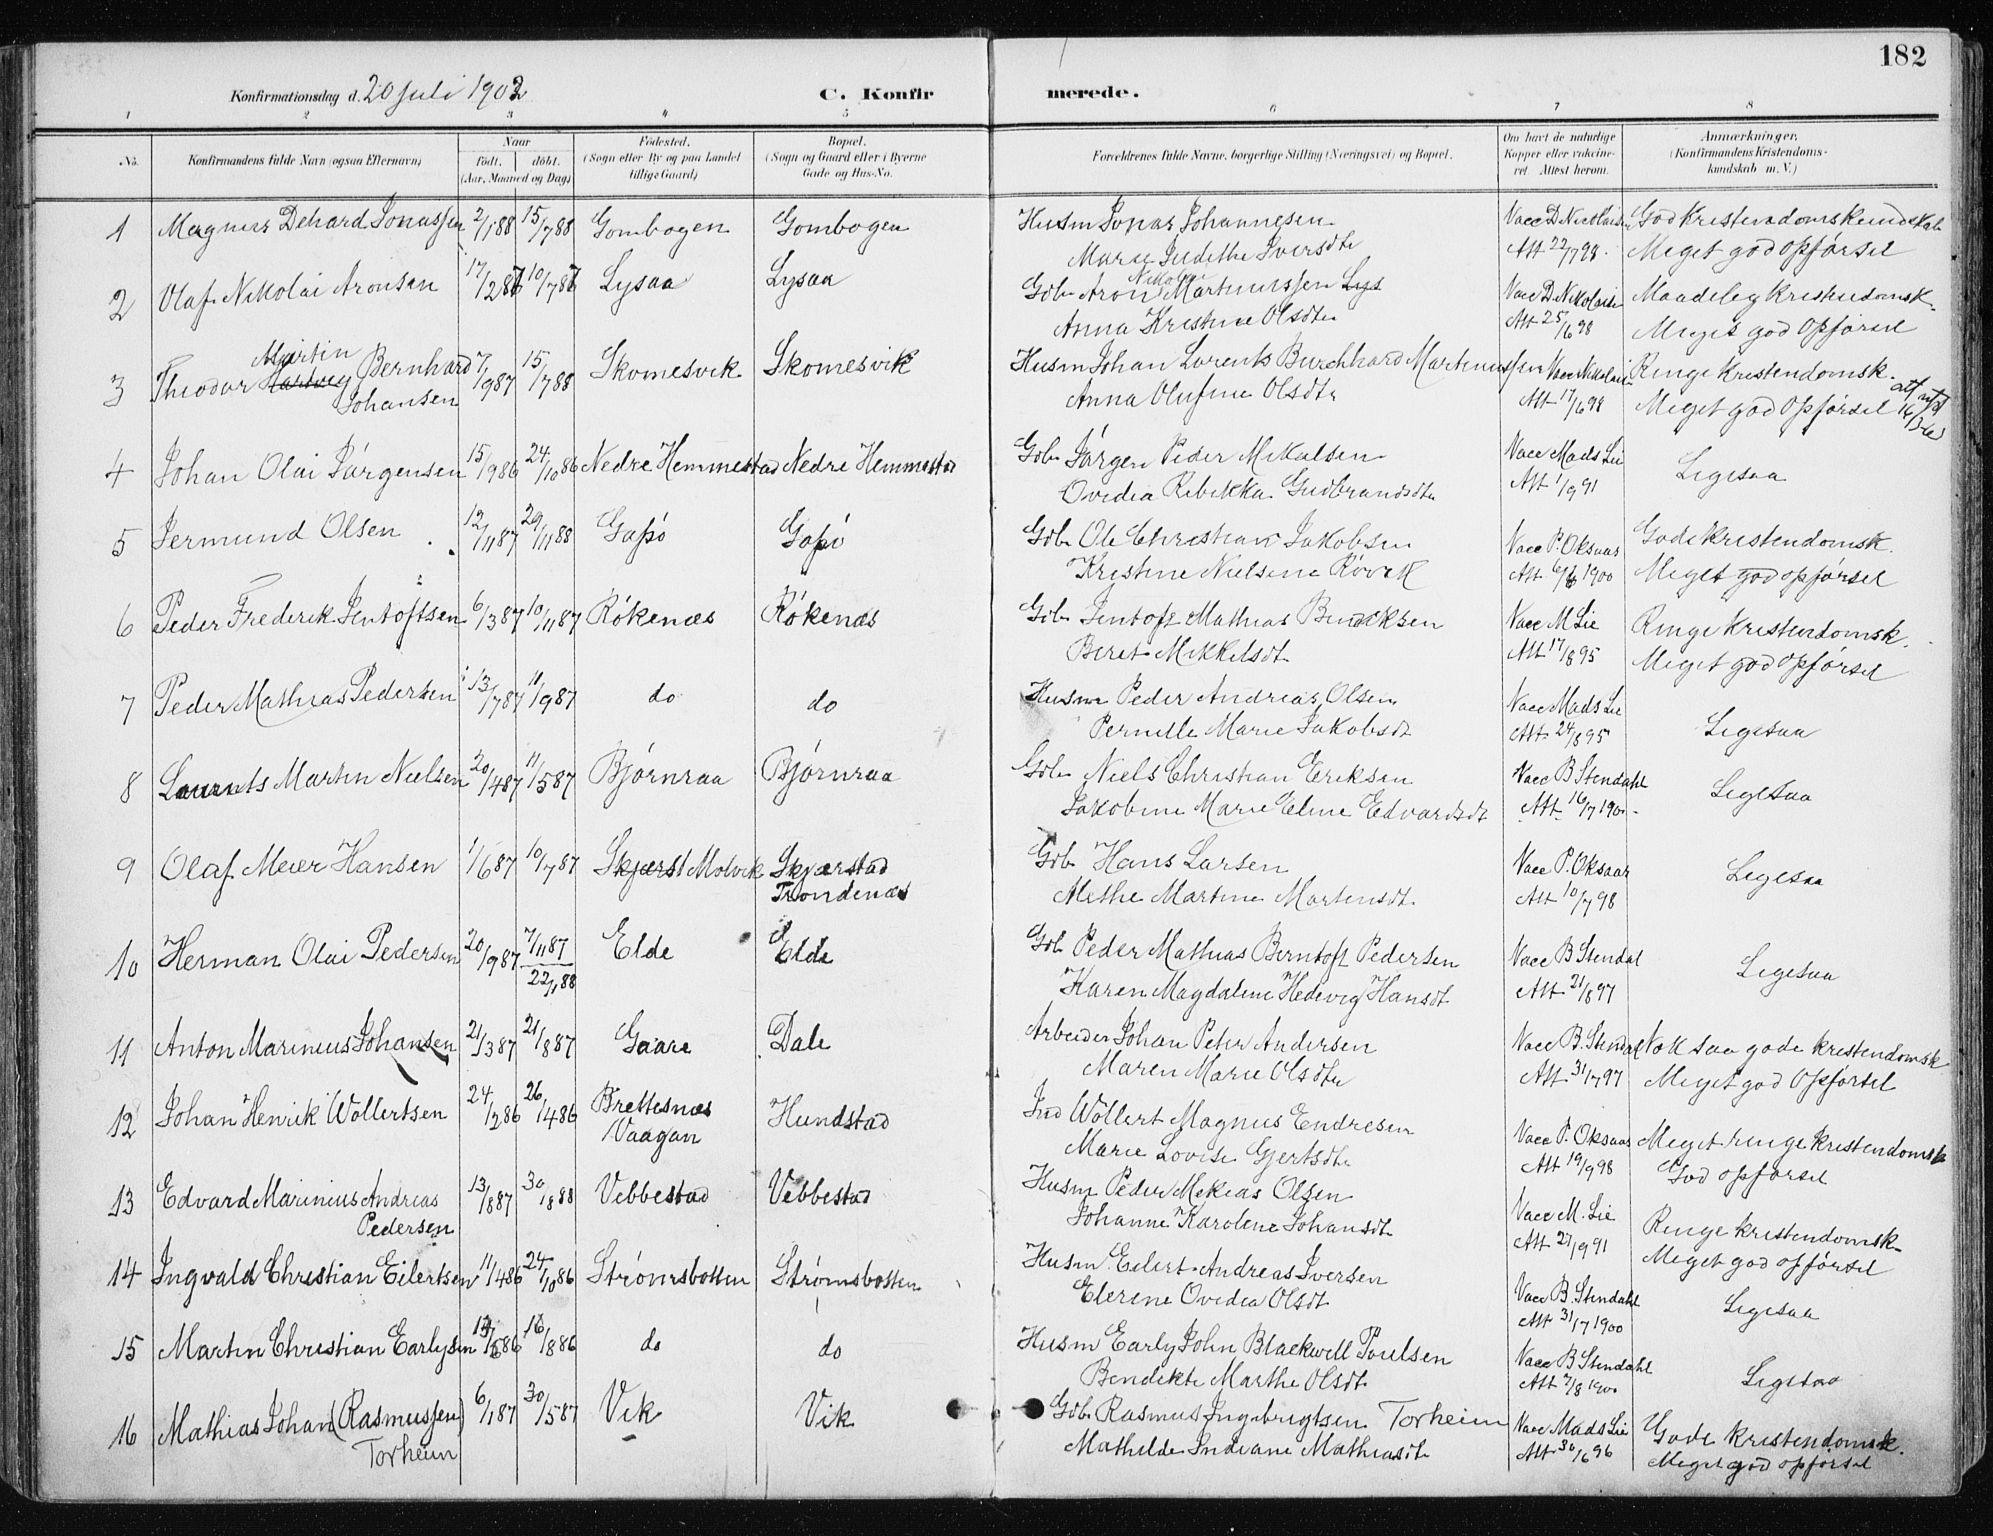 182
Konfirmationsdag d. 20 Juli 1902
C. Konfirmerede.
1 2 3 4 5 6 7 8
No.
Konfirmandens fulde Navn (ogsaa Efternavn)
Naar
født. døbt.
(Aar, Maaned og Dag)
Fødested.
(Sogn eller By og paa Landet
tillige Gaard)
Bopæl.
(Sogn og Gaard eller i Byerne
Gade og Hus-No.
Forældrenes fulde Navne, borgerlige Stilling (Næringsvei) og Bopæl.
Om havt de naturlige
Kopper eller vakcine-
ret Attest herom.
Anmærkninger.
(Konfirmandens Kristendoms-
kundskab m. V.)
1 Magnus Dehard Jonassen 2/1 88 15/7 88 Gombogen Gombogen Husm Jonas Johannesen Vacc D. Nicolaisen God Kristendomskundskab
Marie Judithe Iversdtr Att 22/7 98. Meget god opførsel
2 Olaf Nikolai Aronsen 17/2 87 10/7 87 Lysaa Lysaa Gdb Aron Nikolai Martinussen Lys Vacc D. Nikolaisen Maadelig Kristendomsk.
Anna Kristine Olsdtr Att 25/6 98 Meget god opførsel
3 Theodor Martin Bernhard 7/9 87 15/7 88 Skomesvik Skomesvik Husm Johan Lorents Burchhard Martinussen Vacc Nikolai Ringe Kristendomsk.
Johansen Anna Olufine Olsdtr Att 17/6 98 Meget god opførsel
4 Johan Olai Jørgensen 15/9 86 24/10 86 Nedre Hemmestad Nedre Hemmestad Gdb Jørgen Peder Mikalsen Vacc Mads Lie Ligesaa
Ovidia Rebekka Gudbrandsdtr Att 1/9 91
5 Jermund Olsen 12/11 87 29/11 88 Gapø Gapø Gdb Ole Christian Jakobsen Vacc P. Oksaas Gode kristendomsk.
Kristine Nielsine Røvik Att 6/6 1900 Meget god opførsel
6 Peder Frederik Jentoftsen 6/3 87 10/11 87 Røkenæs Røkenæs Gdb Jentoft Mathias Bendiksen Vacc M Lie Ringe kristendomsk.
Beret Mikkelsdt Att 17/8 95 Meget god opførsel
7 Peder Mathias Pedersen 13/7 87 11/9 87 do do Husm Peder Andreas Olsen Vacc Mads Lie Ligesaa
Pernille Marie Jakobsdt Att 24/8 95
8 Laurits Martin Nielsen 20/4 87 11/5 87 Bjørnraa Bjørnraa Gdb Niels Christian Eriksen Vacc B Stendahl Ligesaa
Jakobine Marie Eline Edvardsdt Att 16/7 1900
9 Olaf Meier Hansen 1/6 87 10/7 87 Skjærst Molvik Skjærstad Gdb Hans Larsen Vacc P. Oksaar Ligesaa
Trondenæs Alethe Martine Martensdt. Att 10/7 98
10 Herman Olai Pedersen 20/9 87 7/11 87 22/1 88 Elde Elde Gdb Peder Mathias Berntoft Pedersen Vacc B Stendal Ligesaa
Karen Magdalene Hedevig Hansdt Att 21/8 97
11 Anton Marinius Johansen 21/3 87 21/8 87 Gaare Dale Arbeider Johan Peter Andersen Vacc B. Stendal Nok saa gode kristendomsk
Maren Marie Olsdtr Att 31/7 97 Meget god opførsel
12 Johan Henrik Wollertsen 24/2 86 26/4 86 Brettesnæs Hundstad Ind Wollert Magnus Endresen Vacc P. Oksaas Meget ringe kristendomsk
/Vaagan Marie Lovise Gjertsdtr Att 19/9 98 God opførsel
13 Edvard Marinius Andreas 13/8 87 30/1 88 Vebbestad Vebbestad Husm Peder Mekias Olsen Vacc M. Lie Ringe kristendomsk.
Pedersen Johanne Karoline Johansdt Att 27/9 91 Meget god opførsel
14 Ingvald Christian Eilertsen 11/4 86 24/10 86 Strømsbotten Strømsbotten Husm. Eilert Andreas Iversen Vacc B. Stendahl Ligesaa
Elerine Ovidia Olsdt Att 31/7 1900
15 Martin Christian Earlysen 5 86 16/8 86 do do Husm Early John Blackwell Poulsen Vacc B Stendahl Ligesaa
Bendikte Marthe Olsdt Att 7/8 1900
16 Mathias Johan (Rasmussen) 6/1 87 30/5 87 Vik Vik Gdb Rasmus Ingebrigtsen Torheim Vacc Mads Lie Gode kristendomsk.
Torheim Mathilde Indiane Mathiasdt Att 30/6 96 Meget god opførsel